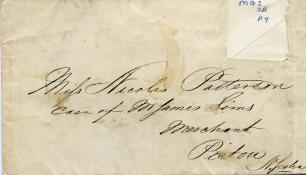 MG2
P.9
Miss Nicolis Patterson
Care of Mr James Sims
Merchant
Pictou
N. Scotia